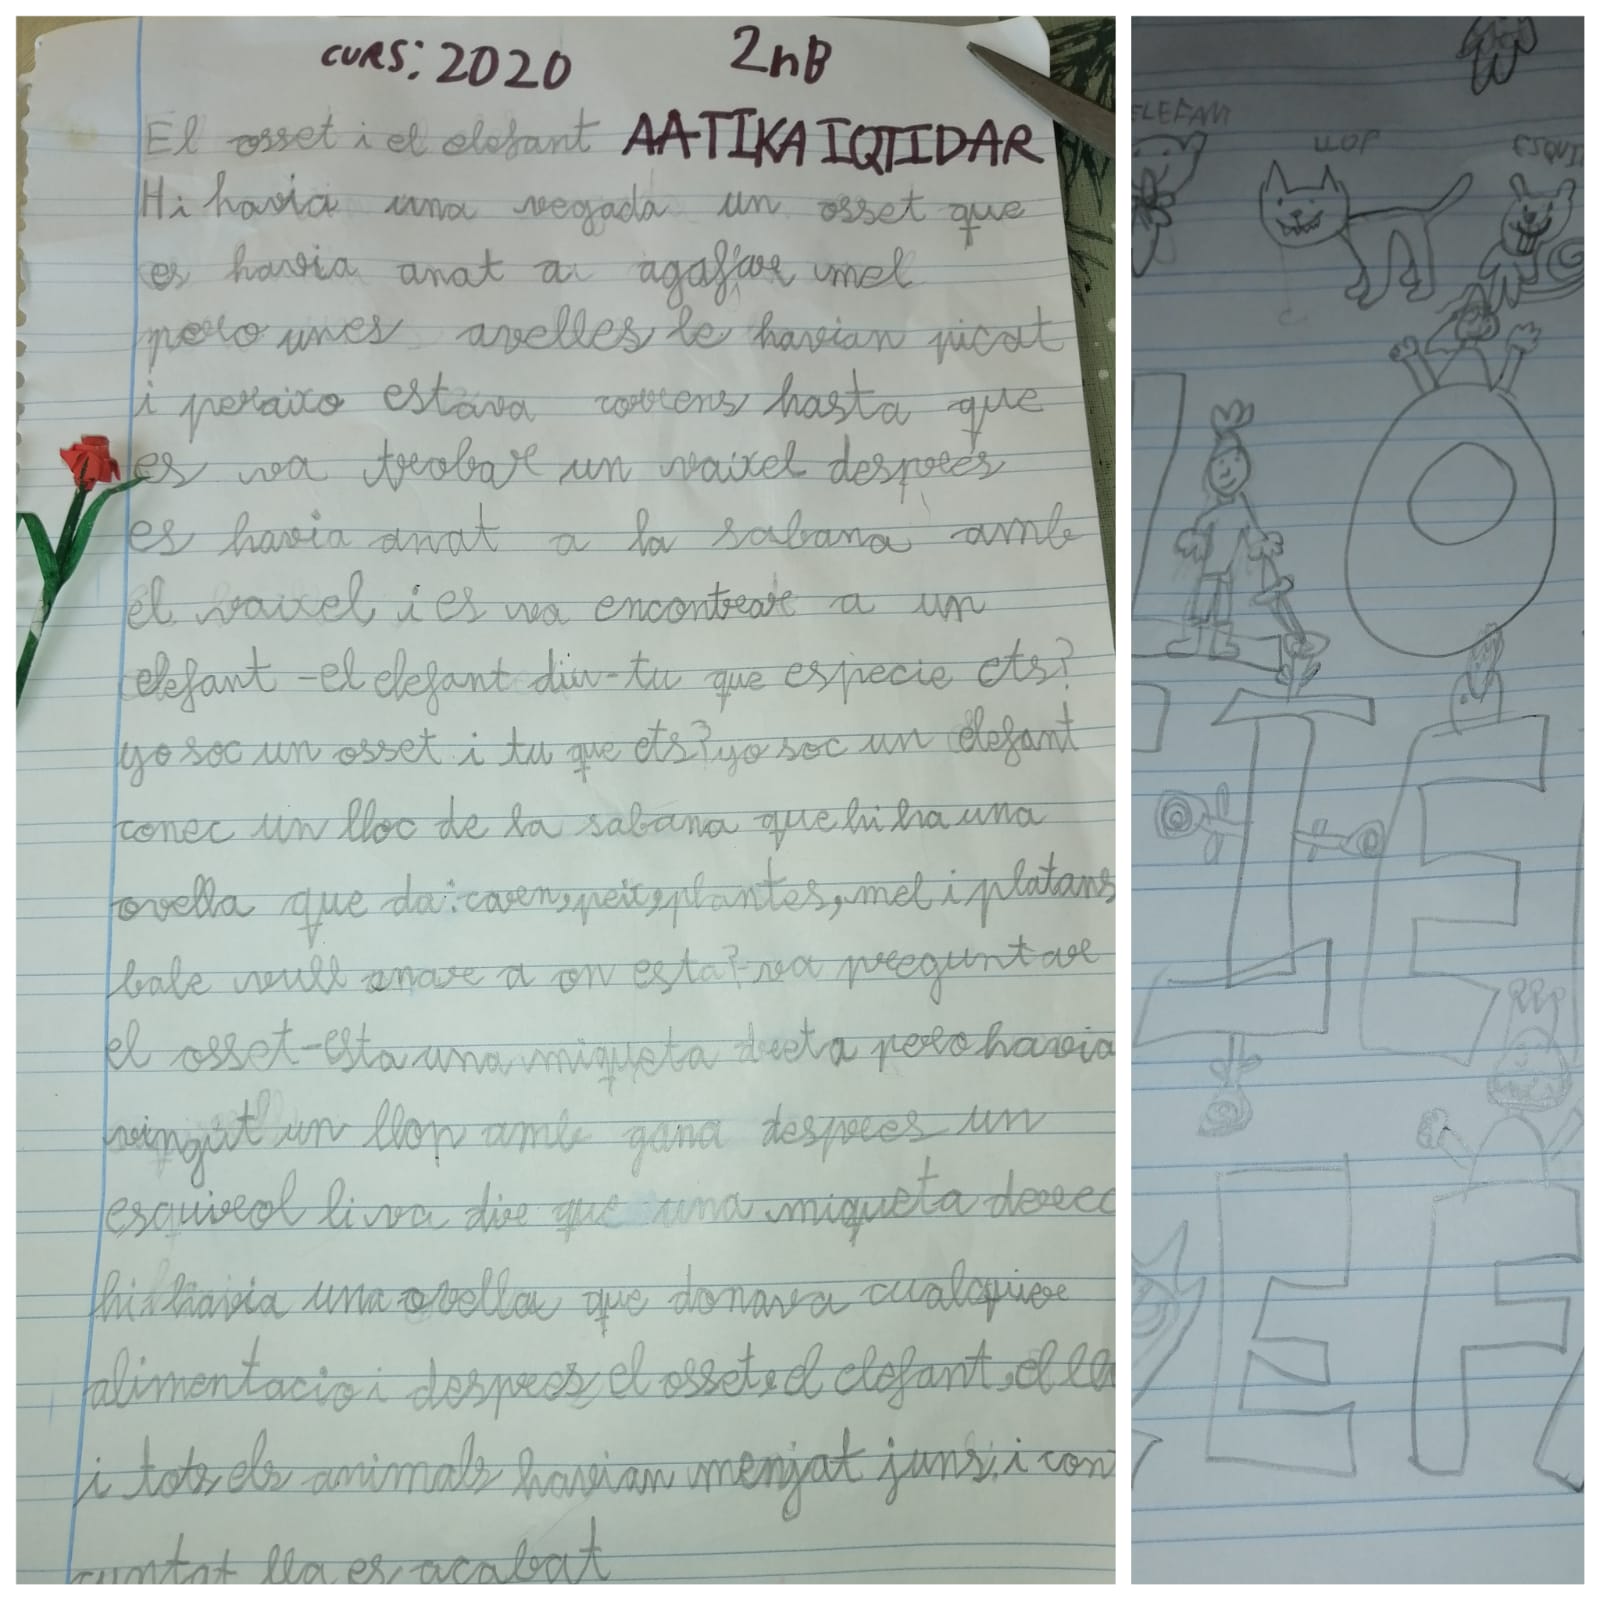 CURS: 2020 2nB
El osset i el elefant AATIKA IQTIDAR
Hi havia una vegada un osset que
es havia anat a agafar mel
pero unes avelles le havian picat
i peraixo estava correns hasta que
es va trobar un vaixel despres
es havia anat a la sabana amb
el vaixel i es va encontrar a un
elefant -el elefant diu-tu que especie ets?
yo soc un osset i tu que ets? yo soc un elefant
conec un lloc de la sabana que hi ha una
ovella que da: caren, peix, plantes, mel i platans
bale vull anar a on esta?-va preguntar
el osset-esta una miqueta dreta pero havia
vingut un llop amb gana despres un
esquirol li va dir que una miqueta derec
hi havia una ovella que donava cualquier
alimentacio i despres el osset, el elefant, el llo
i tots els animals havian menjat juns i con
cuntat lla es acabat
ELEFAN
LLOP
ESQUI